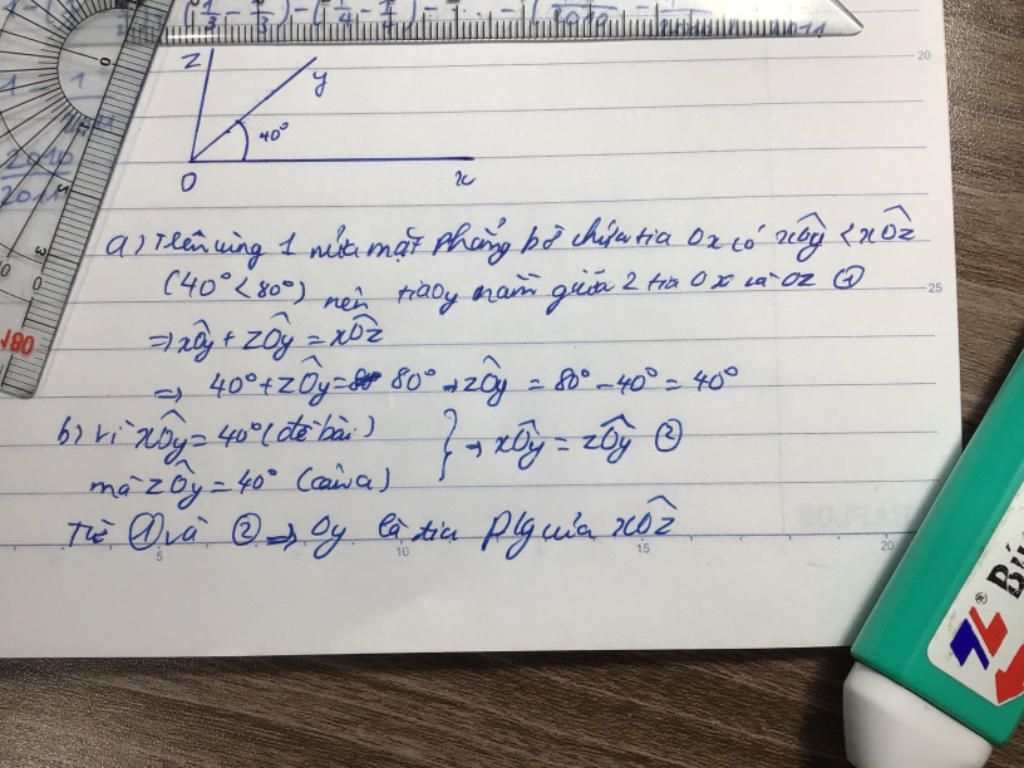 20
z
y
40°
O
x
2010
2011
a) Trên cùng 1 nửa mặt phẳng bờ chứa tia Ox có xÔy < xÔz
(40° < 80°) nên tia Oy nằm giữa 2 tia Ox và Oz ①
25
⇒ xÔy + zÔy = xÔz
180
⇒ 40° + zÔy = 80° → zÔy = 80° - 40° = 40°
b) Vì xÔy = 40° (đề bài)
mà zÔy = 40° (câu a)
} → xÔy = zÔy ②
Từ ① và ② ⇒ Oy là tia p/g của xÔz
5 10 15 20
TL ® Bú